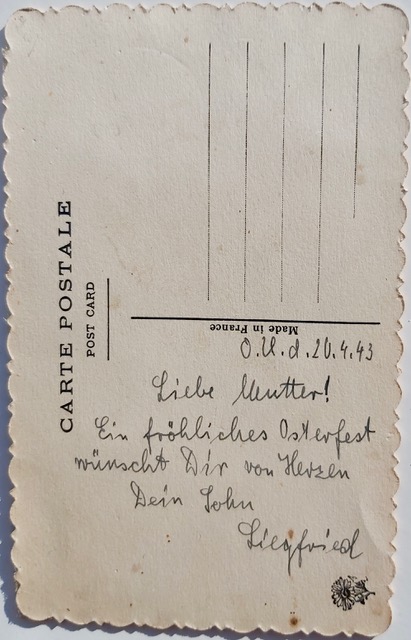 CARTE POSTALE
POST CARD
Made in France
O.U.d. 20.4.43
Liebe Mutter!
Ein fröhliches Osterfest
wünscht Dir von Herzen
Dein Sohn
Siegfried